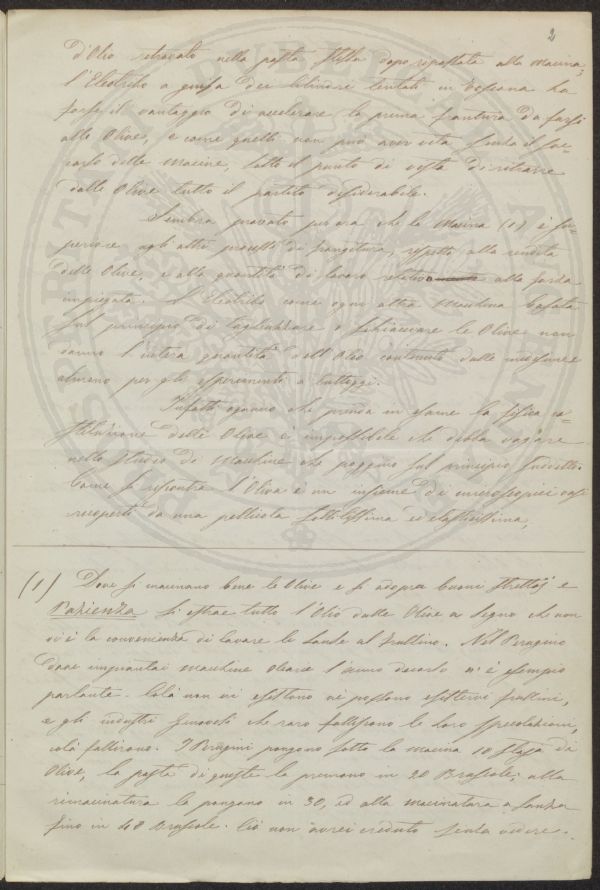 2
d'Olio ritrovato nella pasta stessa dopo ripassata alla macina,
l'Eleotribo a guisa dei Cilindri tentati in Toscana ha
forse il vantaggio di accelerare la prima frantura da farsi
alle Olive, e come quelli non può aver vita senza il soc-
corso delle Macine, sotto il punto di vista di ritrarre
dalle Olive tutto il partito desiderabile.
Sembra provato per ora che la Macina (1) è su-
periore agli altri processi di frangitura, rispetto alla rendita
delle Olive, e alla quantità di lavoro relativo alla forza
impiegata. L'Eleotribo come ogni altra Macchina basata
sul principio di tagliuzzare o schiacciare le Olive non
danno l'intera quantità dell'Olio contenuto dalle medesime
almeno per gli esperimenti a tutt'oggi.
Infatti ognuno che prenda in esame la fisica co-
stituzione delle Olive è impossibile che debba vagare
nello studio di Macchine che poggino sul principio suddetto.
Come si riscontra l'Oliva è un insieme di microscopici vasi
ricoperti da una pellicola sottilissima ed elasticissima,
(1) Dove si macinano bene le Olive e si adopra buoni strettoj e
Pazienza si estrae tutto l'Olio dalle Olive a segno che non
vi è la convenienza di lavare le Sanse al frullino. Nel Perugino
dove impiantai macchine Olearie l'anno decorso n'è esempio
parlante. Colà non vi esistono nè possono esistervi frullini,
e gli industri Genovesi che raro falliscono le loro speculazioni,
colà fallirono. I Perugini pongono sotto la macina 10 Staja di
Olive, la pasta di queste la premono in 20 Bruscole; alla
rimacinatura la pongono in 30, ed alla macinatura a Sansa
sino in 40 Bruscole. Ciò non avrei creduto senza vedere.